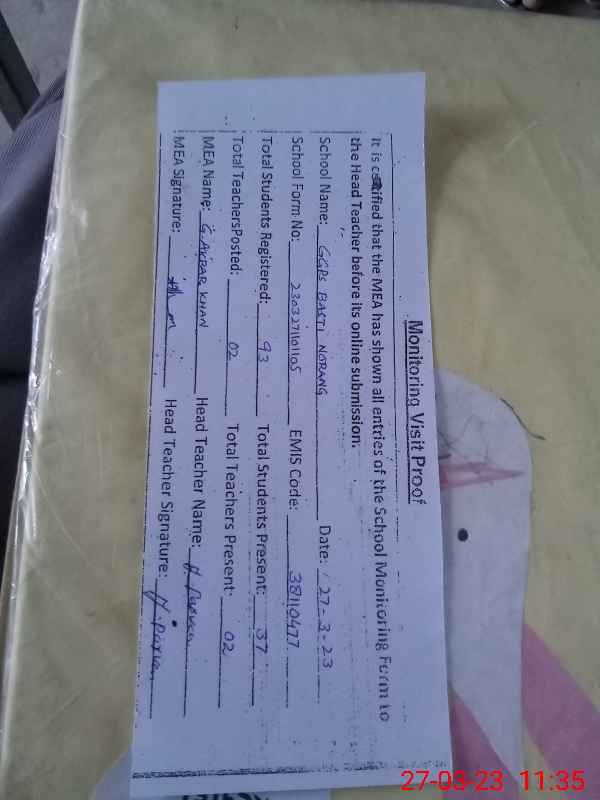 Monitoring Visit Proof
It is certified that the MEA has shown all entries of the School Monitoring Form to
the Head Teacher before its online submission.
School Name: GGPS BASTI NORANG Date: 27-3-23
School Form No: 2303271101105 EMIS Code: 38110477
Total Students Registered: 93 Total Students Present: 37
Total TeachersPosted: 02 Total Teachers Present: 02
MEA Name: G. AKBAR KHAN Head Teacher Name: H. Parveen
MEA Signature: Head Teacher Signature:
27-03-23 11:35